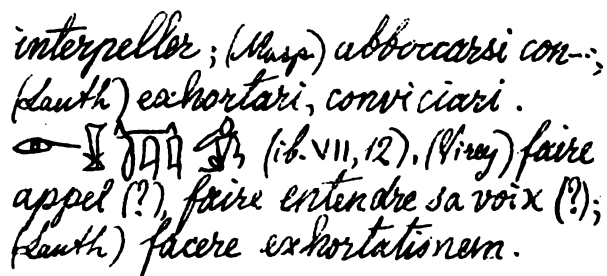 interpeller; (Masp.) abboccarsi con...;
(Lauth) exhortari, conviciari.
(ib. VII, 12). (Virey) faire
appel (?), faire entendre sa voix (?);
(Lauth) facere exhortationem.